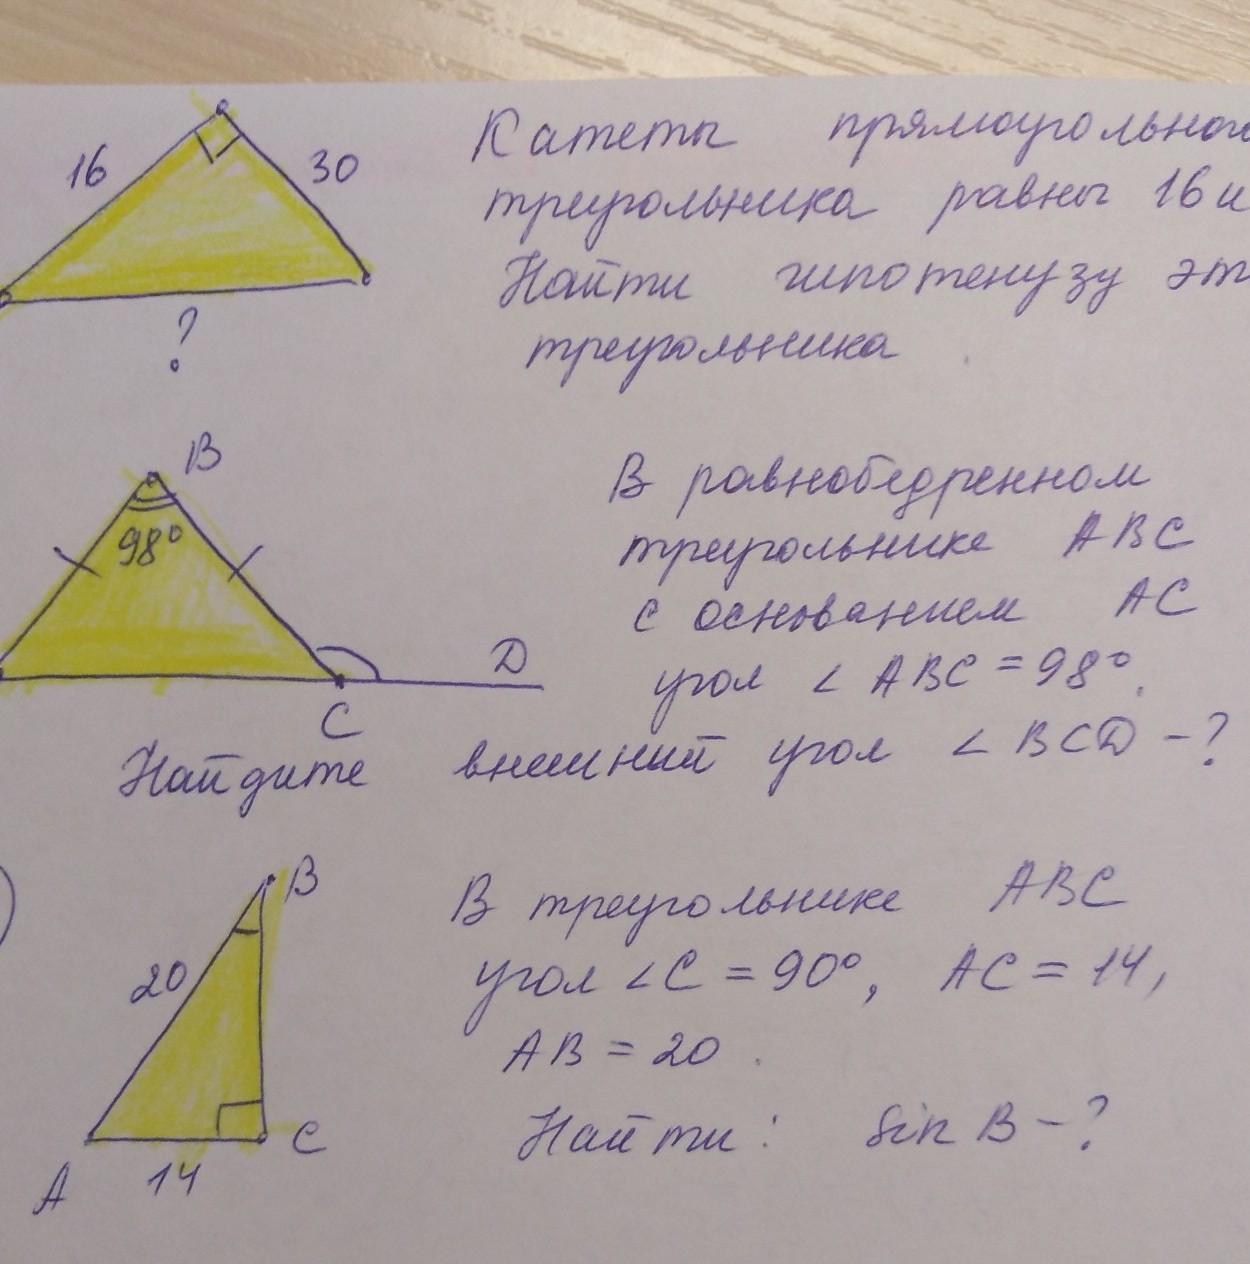 16
30
?
Катеты прямоугольног
треугольника равны 16 и
Найти гипотенузу эт
треугольника
B
98°
D
C
В равнобедренном
треугольнике ABC
с основанием AC
угол ∠ ABC = 98°.
Найдите внешний угол ∠ BCD - ?
B
20
A
14
C
В треугольнике ABC
угол ∠C = 90°, AC = 14,
AB = 20.
Найти: Sin B - ?